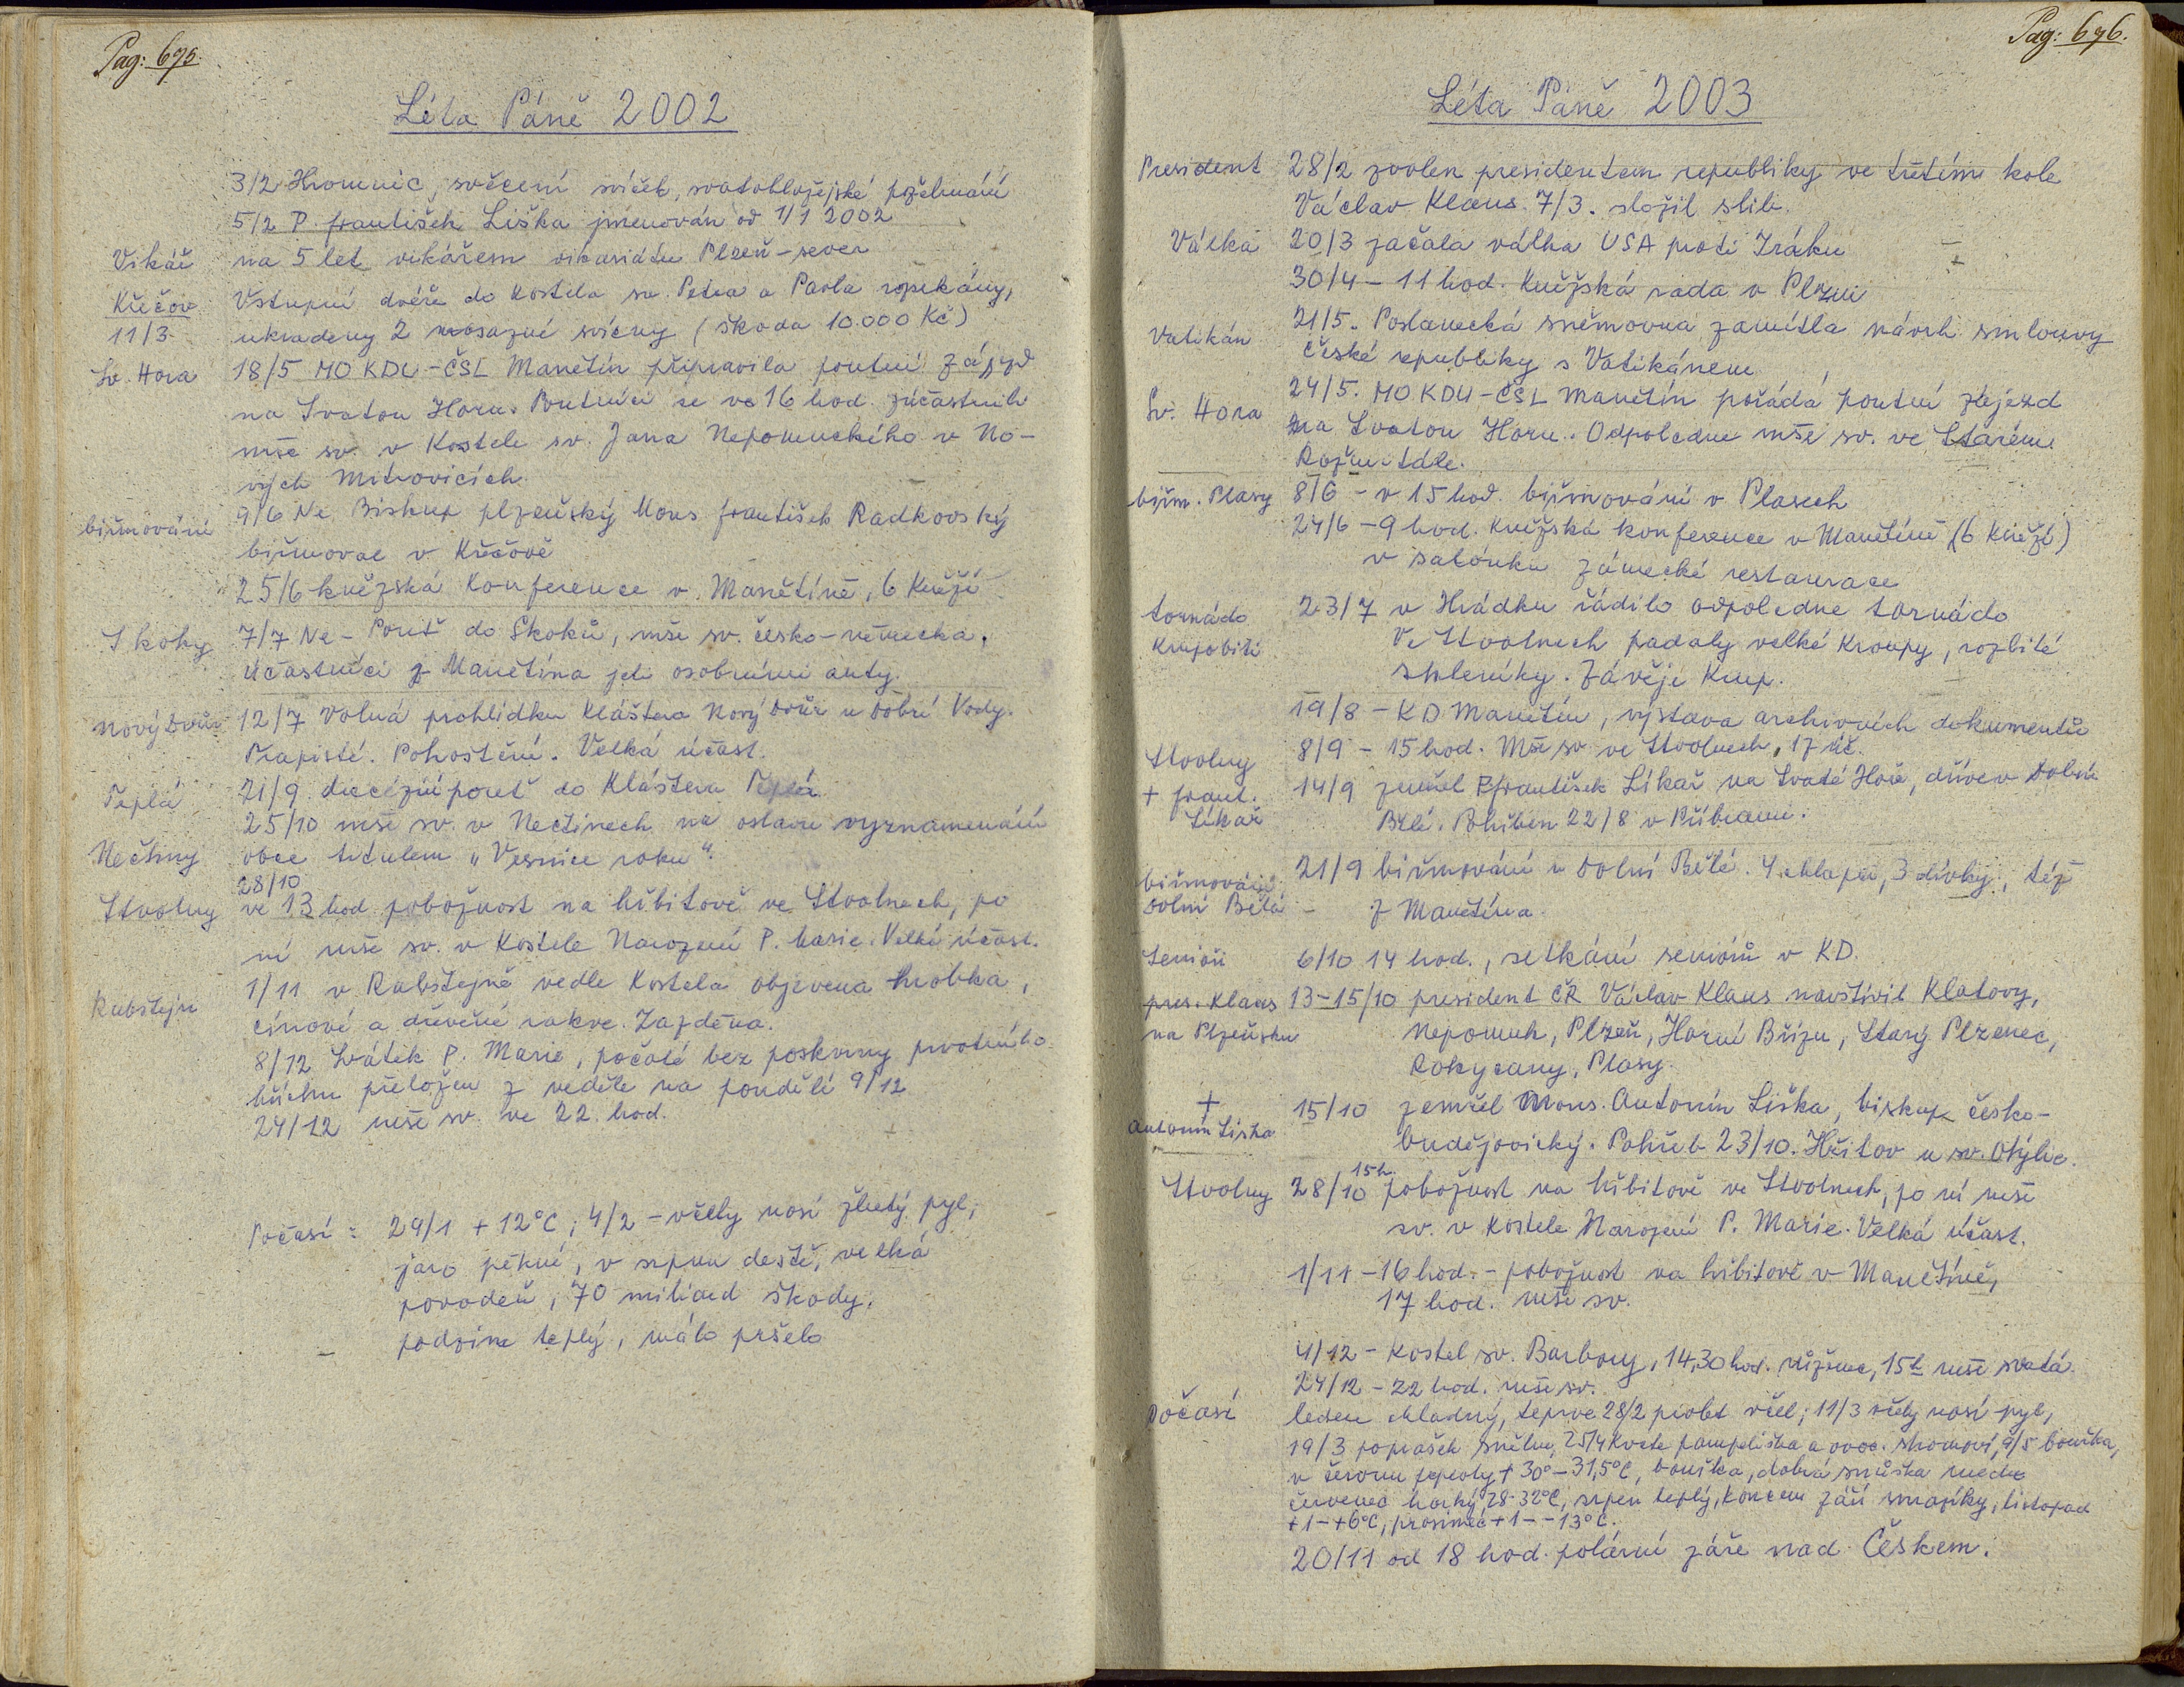 Pag: 695.
Léta Páně 2002
3/2 Hromnic, svěcení svíček, svatoblažejské požehnání
5/2 P. František Liška jmenován od 1/1 2002
Vikář na 5 let vikářem vikariátu Plzeň-sever
Křečov Vstupní dveře do kostela sv. Petra a Pavla vypáčeny,
11/3 ukradeny 2 mosazné svícny (škoda 10.000 Kč)
Sv. Hora 18/5 MO KDU-ČSL Manětín připravila poutní zájezd
na Svatou Horu. Poutníci se ve 16 hod. zúčastnili
mše sv. v kostele sv. Jana Nepomuckého v No-
vých Mitrovicích.
9/6 Ne Biskup plzeňský Mons František Radkovský
biřmování biřmoval v Křečově
25/6 kněžská konference v Manětíně, 6 kněží
Skoky 7/7 Ne - Pouť do Skoků, mše sv. česko-německá,
účastníci z Manětína jeli osobními auty.
Nový Dvůr 12/7 Volná prohlídka kláštera Nový Dvůr u Dobré Vody.
Trapisté. Pohoštění. Velká účast.
Teplá 21/9 diecézní pouť do kláštera Teplá
25/10 mše sv. v Nečtinech na oslavu vyznamenání
Nečtiny obce titulem „Vesnice roku".
28/10
Stvolny ve 13 hod pobožnost na hřbitově ve Stvolnech, po
ní mše sv. v kostele Narození P. Marie. Velká účast.
Rabštejn 1/11 v Rabštejně vedle kostela objevena hrobka,
cínové a dřevěné rakve. Zazděna.
8/12 Svátek P. Marie, počaté bez poskvrny prvotního
hříchu přeložen z neděle na pondělí 9/12
24/12 mše sv. ve 22 hod.
Počasí: 29/1 +12°C; 4/2 - včely nosí žlutý pyl;
jaro pěkné, v srpnu deště, velká
povodeň, 70 miliard škody,
podzim teplý, málo pršelo
Pag: 696.
Léta Páně 2003
President 28/2 zvolen presidentem republiky ve třetím kole
Václav Klaus. 7/3. složil slib.
Válka 20/3 začala válka USA proti Iráku
30/4 - 11 hod. Kněžská rada v Plzni
Vatikán 21/5. Poslanecká sněmovna zamítla návrh smlouvy
České republiky s Vatikánem
Sv. Hora 24/5. MO KDU-ČSL Manětín pořádá poutní zájezd
na Svatou Horu. Odpoledne mše sv. ve Starém
Rožmitále.
biřm. Plasy 8/6 - v 15 hod. biřmování v Plasech
24/6 - 9 hod. Kněžská konference v Manětíně (6 kněží)
v salónku zámecké restaurace
tornádo 23/7 v Hrádku řádilo odpoledne tornádo
Krupobití Ve Stvolnech padaly velké kroupy, rozbité
skleníky. Závěje krup.
19/8 - KD Manětín, výstava archivních dokumentů
Stvolny 8/9 - 15 hod. Mše sv. ve Stvolnech, 17 úč.
+ Frant. 14/9 zemřel P. František Líkař na Svaté Hoře, dříve v Dolní
Líkař Bělé. Pohřben 22/8 v Příbrami.
biřmování 21/9 biřmování v Dolní Bělé. 4 chlapci, 3 dívky, též
Dolní Bělá - z Manětína.
Senioři 6/10 14 hod., setkání seniorů v KD.
pres. Klaus 13-15/10 president ČR Václav Klaus navštívil Klatovy,
na Plzeňsku Nepomuk, Plzeň, Horní Břízu, Starý Plzenec,
Rokycany, Plasy.
+ 15/10 zemřel Mons. Antonín Liška, biskup česko-
Antonín Liška budějovický. Pohřeb 23/10. Hřbitov u sv. Otýlie.
15h.
Stvolny 28/10 pobožnost na hřbitově ve Stvolnech, po ní mše
sv. v kostele Narození P. Marie. Velká účast.
1/11 - 16 hod. - pobožnost na hřbitově v Manětíně,
17 hod. mše sv.
4/12 - Kostel sv. Barbory, 14,30 hod. růženec, 15h mše svatá
24/12 - 22 hod. mše sv.
Počasí leden chladný, teprve 28/2 prolet včel; 11/3 včely nosí pyl,
19/3 poprašek sněhu, 25/4 kvete pampeliška a ovoc. stromoví, 9/5 bouřka,
v červnu teploty +30°-31,5°C, bouřka, dobrá snůška medu
červenec horký 28-32°C, srpen teplý, koncem září mrazíky, listopad
+1-+6°C, prosinec +1--13°C.
20/11 od 18 hod. polární záře nad Českem.